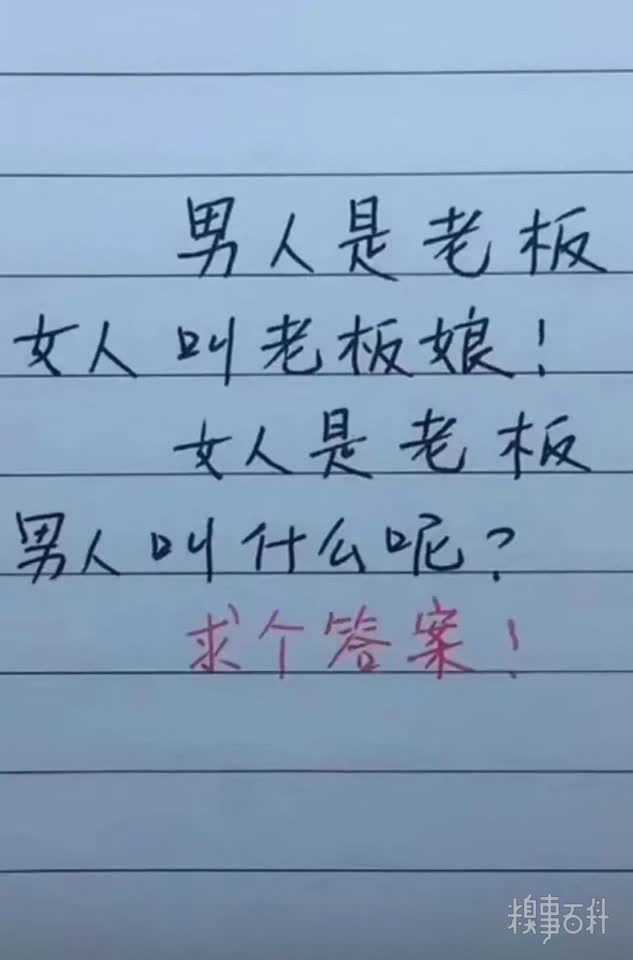 男人是老板
女人叫老板娘!
女人是老板
男人叫什么呢?
求个答案!
糗事百科